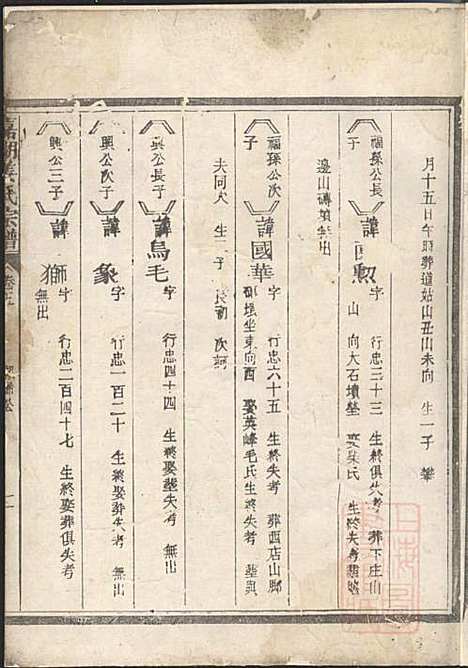 月十五日午時葬道姑山丑山未向 生一子 攀
福孫公長子
諱 勲 字 行忠三十三 生終俱失考 葬下庄山
山 向大石墳塋 娶柴氏 生終失考
邊山磚墳無出
福孫公次子
諱國華 字 行忠六十五 生終失考 葬西店山脚
坐東向酉 娶英峰毛氏生終失考 塟與
夫同穴 生二子 長 次
興公長子
諱烏毛 字 行忠四十四 生終娶塟失考 無出
興公次子
諱象 字 行忠一百二十 生終娶葬失考 無出
興公三子
諱獅 字 行忠二百四十七 生終娶葬俱失考
無出
氏宗譜 卷